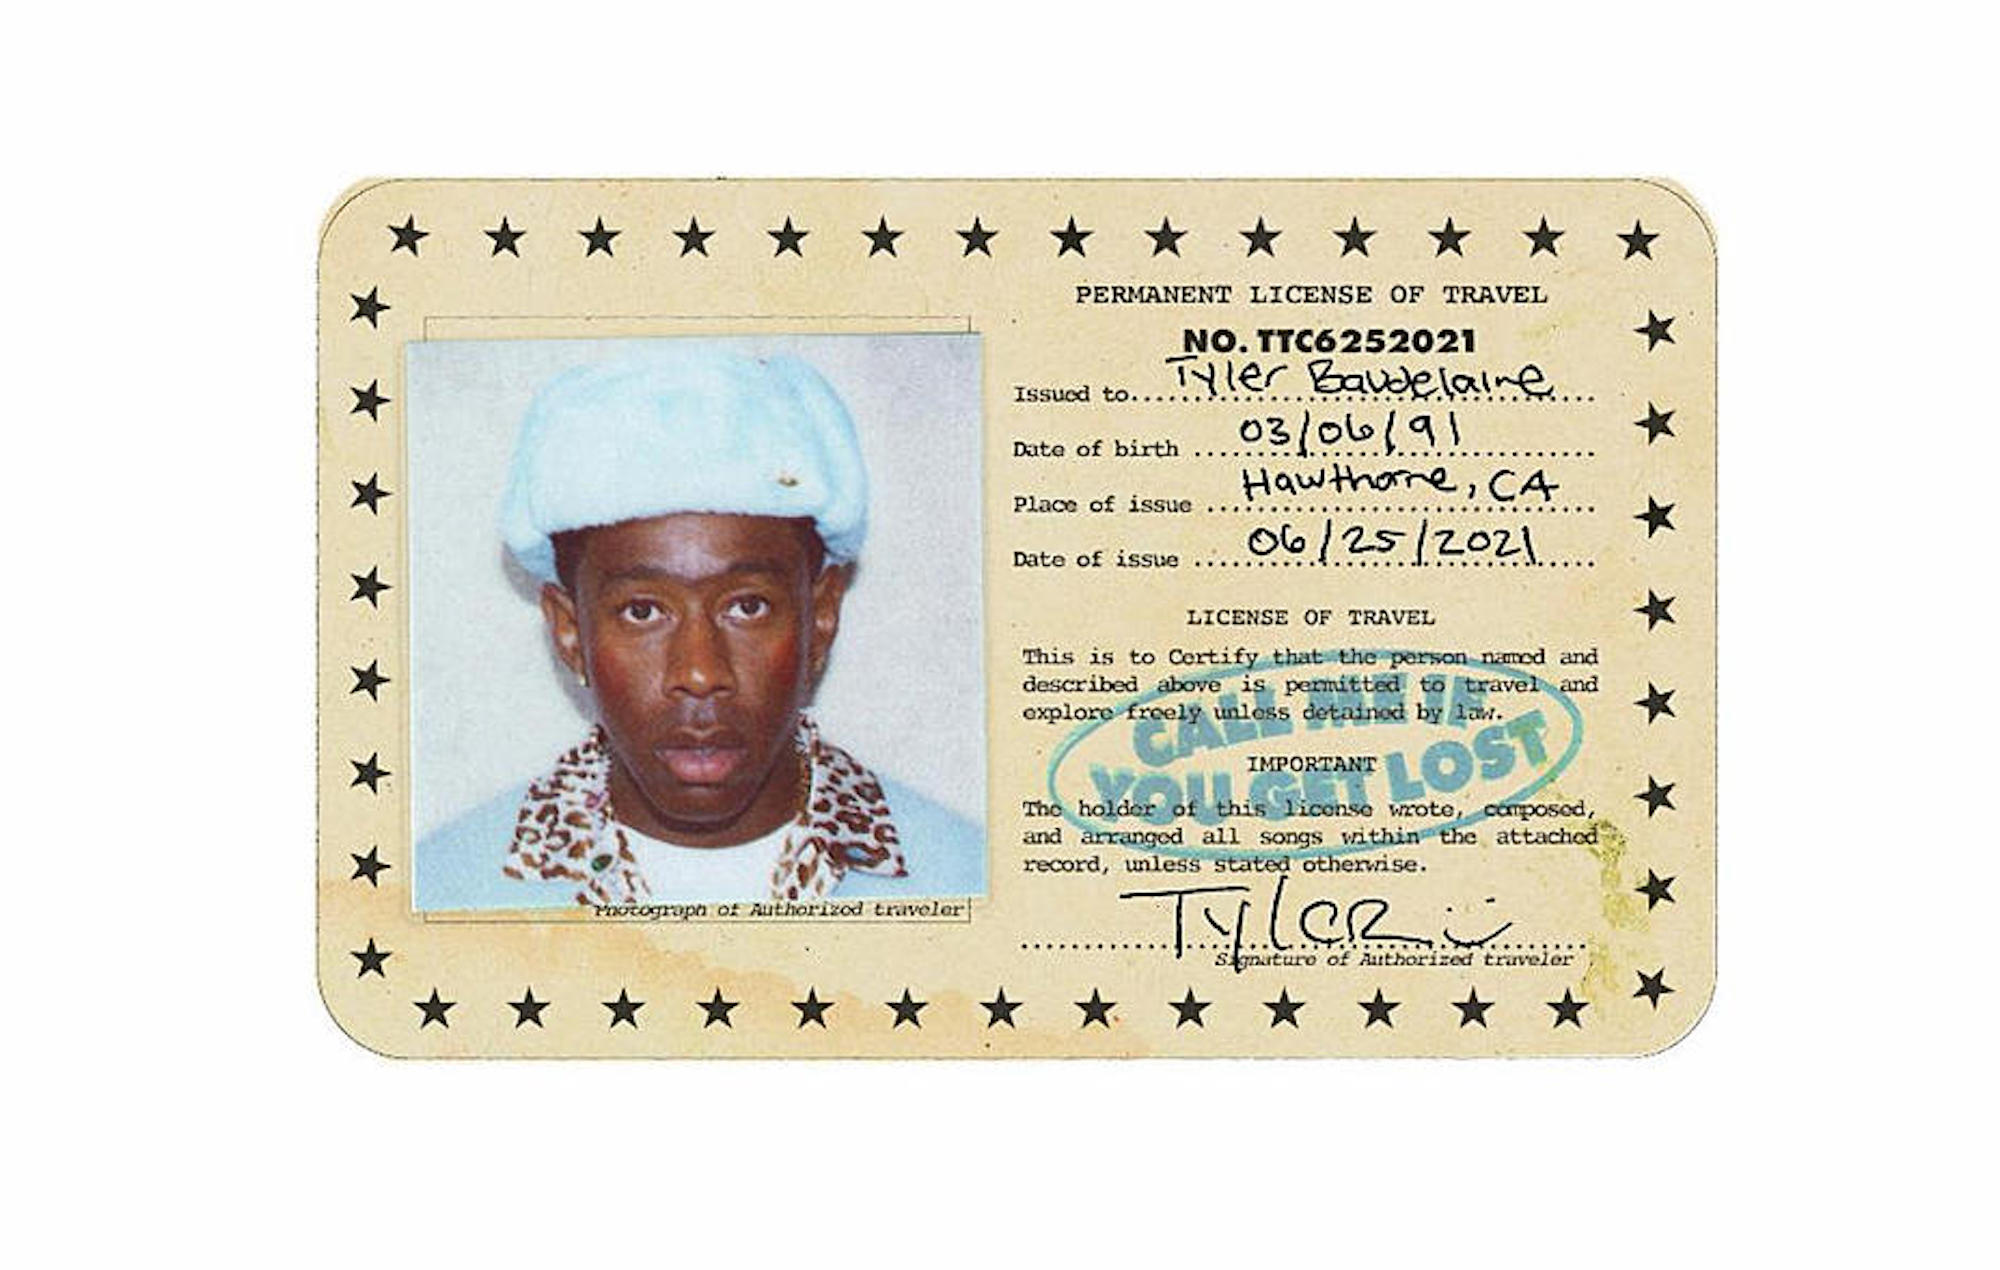 PERMANENT LICENSE OF TRAVEL
NO. TTC6252021
Issued to Tyler Baudelaire
Date of birth 03/06/91
Place of issue Hawthorne, CA
Date of issue 06/25/2021
LICENSE OF TRAVEL
This is to Certify that the person named and
described above is permitted to travel and
explore freely unless detained by law.
CALL ME IF
YOU GET LOST
IMPORTANT
The holder of this license wrote, composed,
and arranged all songs within the attached
record, unless stated otherwise.
TyleR
Signature of Authorized traveler
Photograph of Authorized traveler